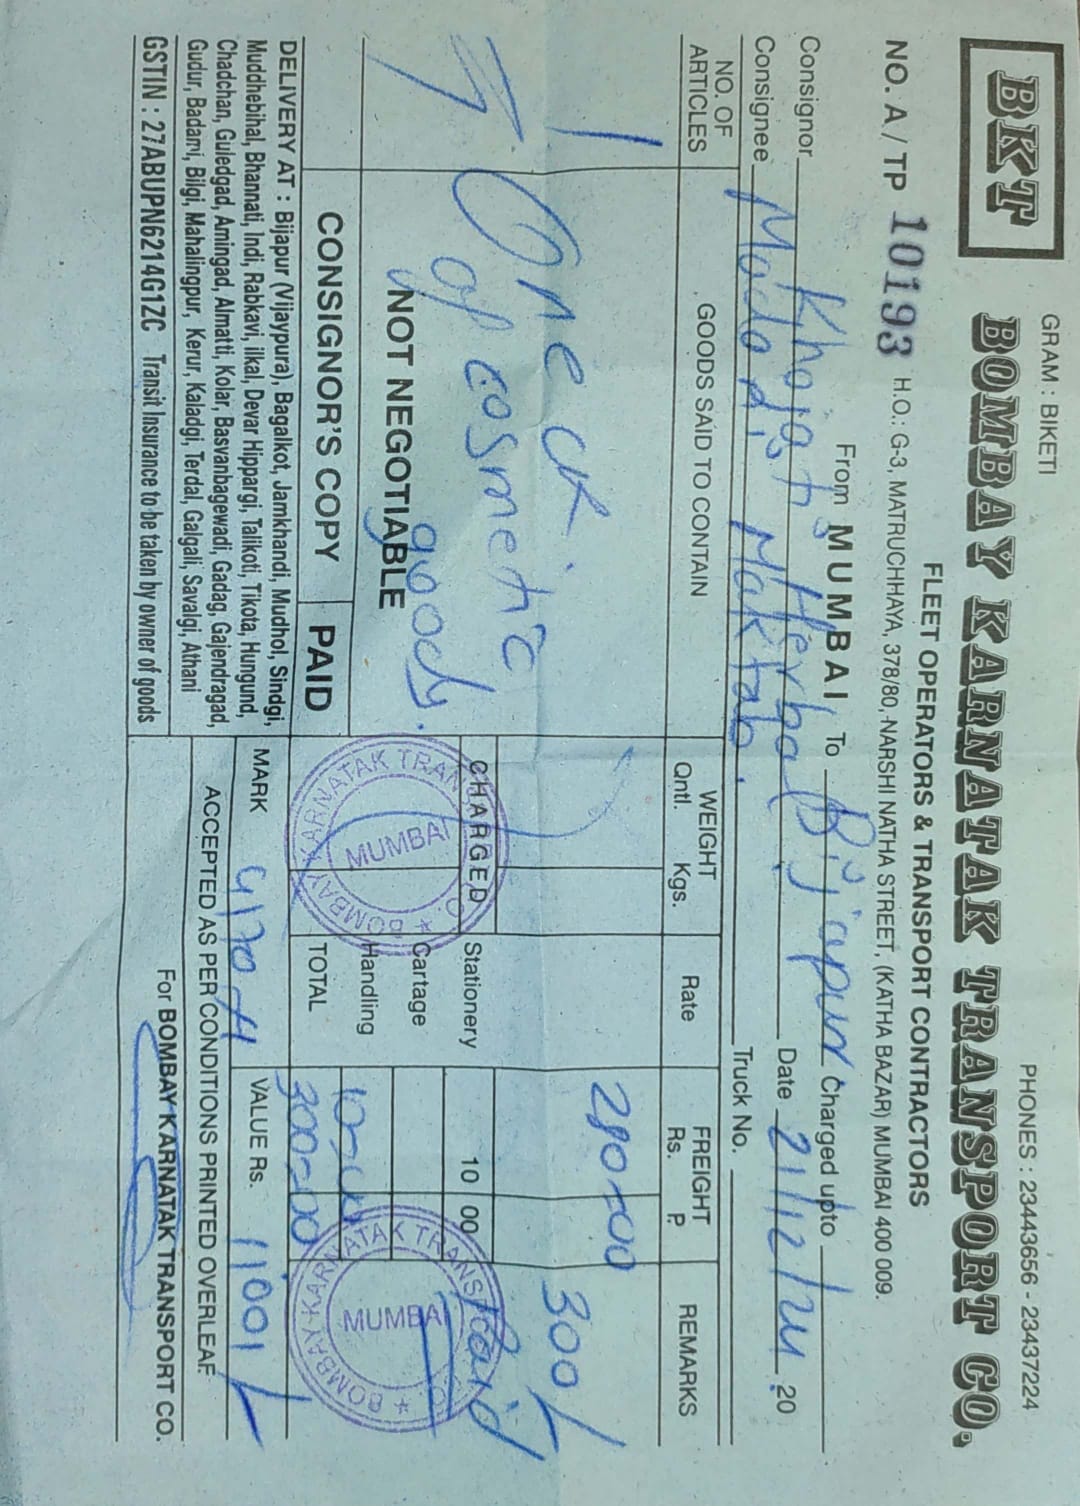 GRAM : BIKETI
PHONES : 23443656 - 23437224
BKT
BOMBAY KARNATAK TRANSPORT CO.
FLEET OPERATORS & TRANSPORT CONTRACTORS
NO. A / TP 10193 H.O.: G-3, MATRUCHHAYA, 378/80, NARSHI NATHA STREET, (KATHA BAZAR) MUMBAI 400 009.
From MUMBAI To Bijapur Charged upto
Consignor Khojati's Herbal Date 21/12/20
Consignee Madodi Maktab. Truck No.
NO. OF ARTICLES
GOODS SAID TO CONTAIN
WEIGHT
Qntl. Kgs.
Rate
FREIGHT
Rs. P.
REMARKS
1
One
of cosmetic
goods.
280-00
300/-
Paid
CHARGED
Stationery 10 00
Cartage
Handling 10-00
TOTAL 300-00
NOT NEGOTIABLE
CONSIGNOR'S COPY PAID
DELIVERY AT : Bijapur (Vijaypura), Bagalkot, Jamkhandi, Mudhol, Sindgi,
Muddhebihal, Bhannati, Indi, Rabkavi, ilkal, Devar Hippargi, Talikoti, Tikota, Hungund,
Chadchan, Guledgad, Amingad, Almatti, Kolar, Basvanbagewadi, Gadag, Gajendragad,
Gudur, Badami, Bilgi, Mahalingpur, Kerur, Kaladgi, Terdal, Galgali, Savalgi, Athani
GSTIN : 27ABUPN6214G1ZC Transit Insurance to be taken by owner of goods
MARK VALUE Rs. 11001/-
ACCEPTED AS PER CONDITIONS PRINTED OVERLEAF
For BOMBAY KARNATAK TRANSPORT CO.
BOMBAY KARNATAK TRANSPORT CO.
MUMBAI
BOMBAY KARNATAK TRANSPORT CO.
MUMBAI